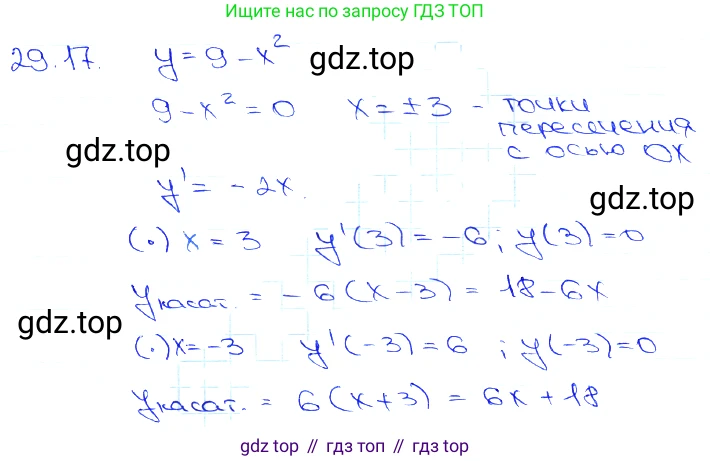 Ищите нас по запросу ГДЗ ТОП
29.17. y = 9 - x²
gdz.top
9 - x² = 0 x = ± 3 - точки
пересечения
с осью OX
gdz.top
y' = - 2x.
gdz.top
(·) x = 3 y'(3) = -6; y(3) = 0
y касат. = - 6 (x - 3) = 18 - 6x
gdz.top
(·) x = -3 y'(-3) = 6 ; y(-3) = 0
y касат. = 6 (x + 3) = 6x + 18
gdz top // гдз топ // gdz top // гдз топ